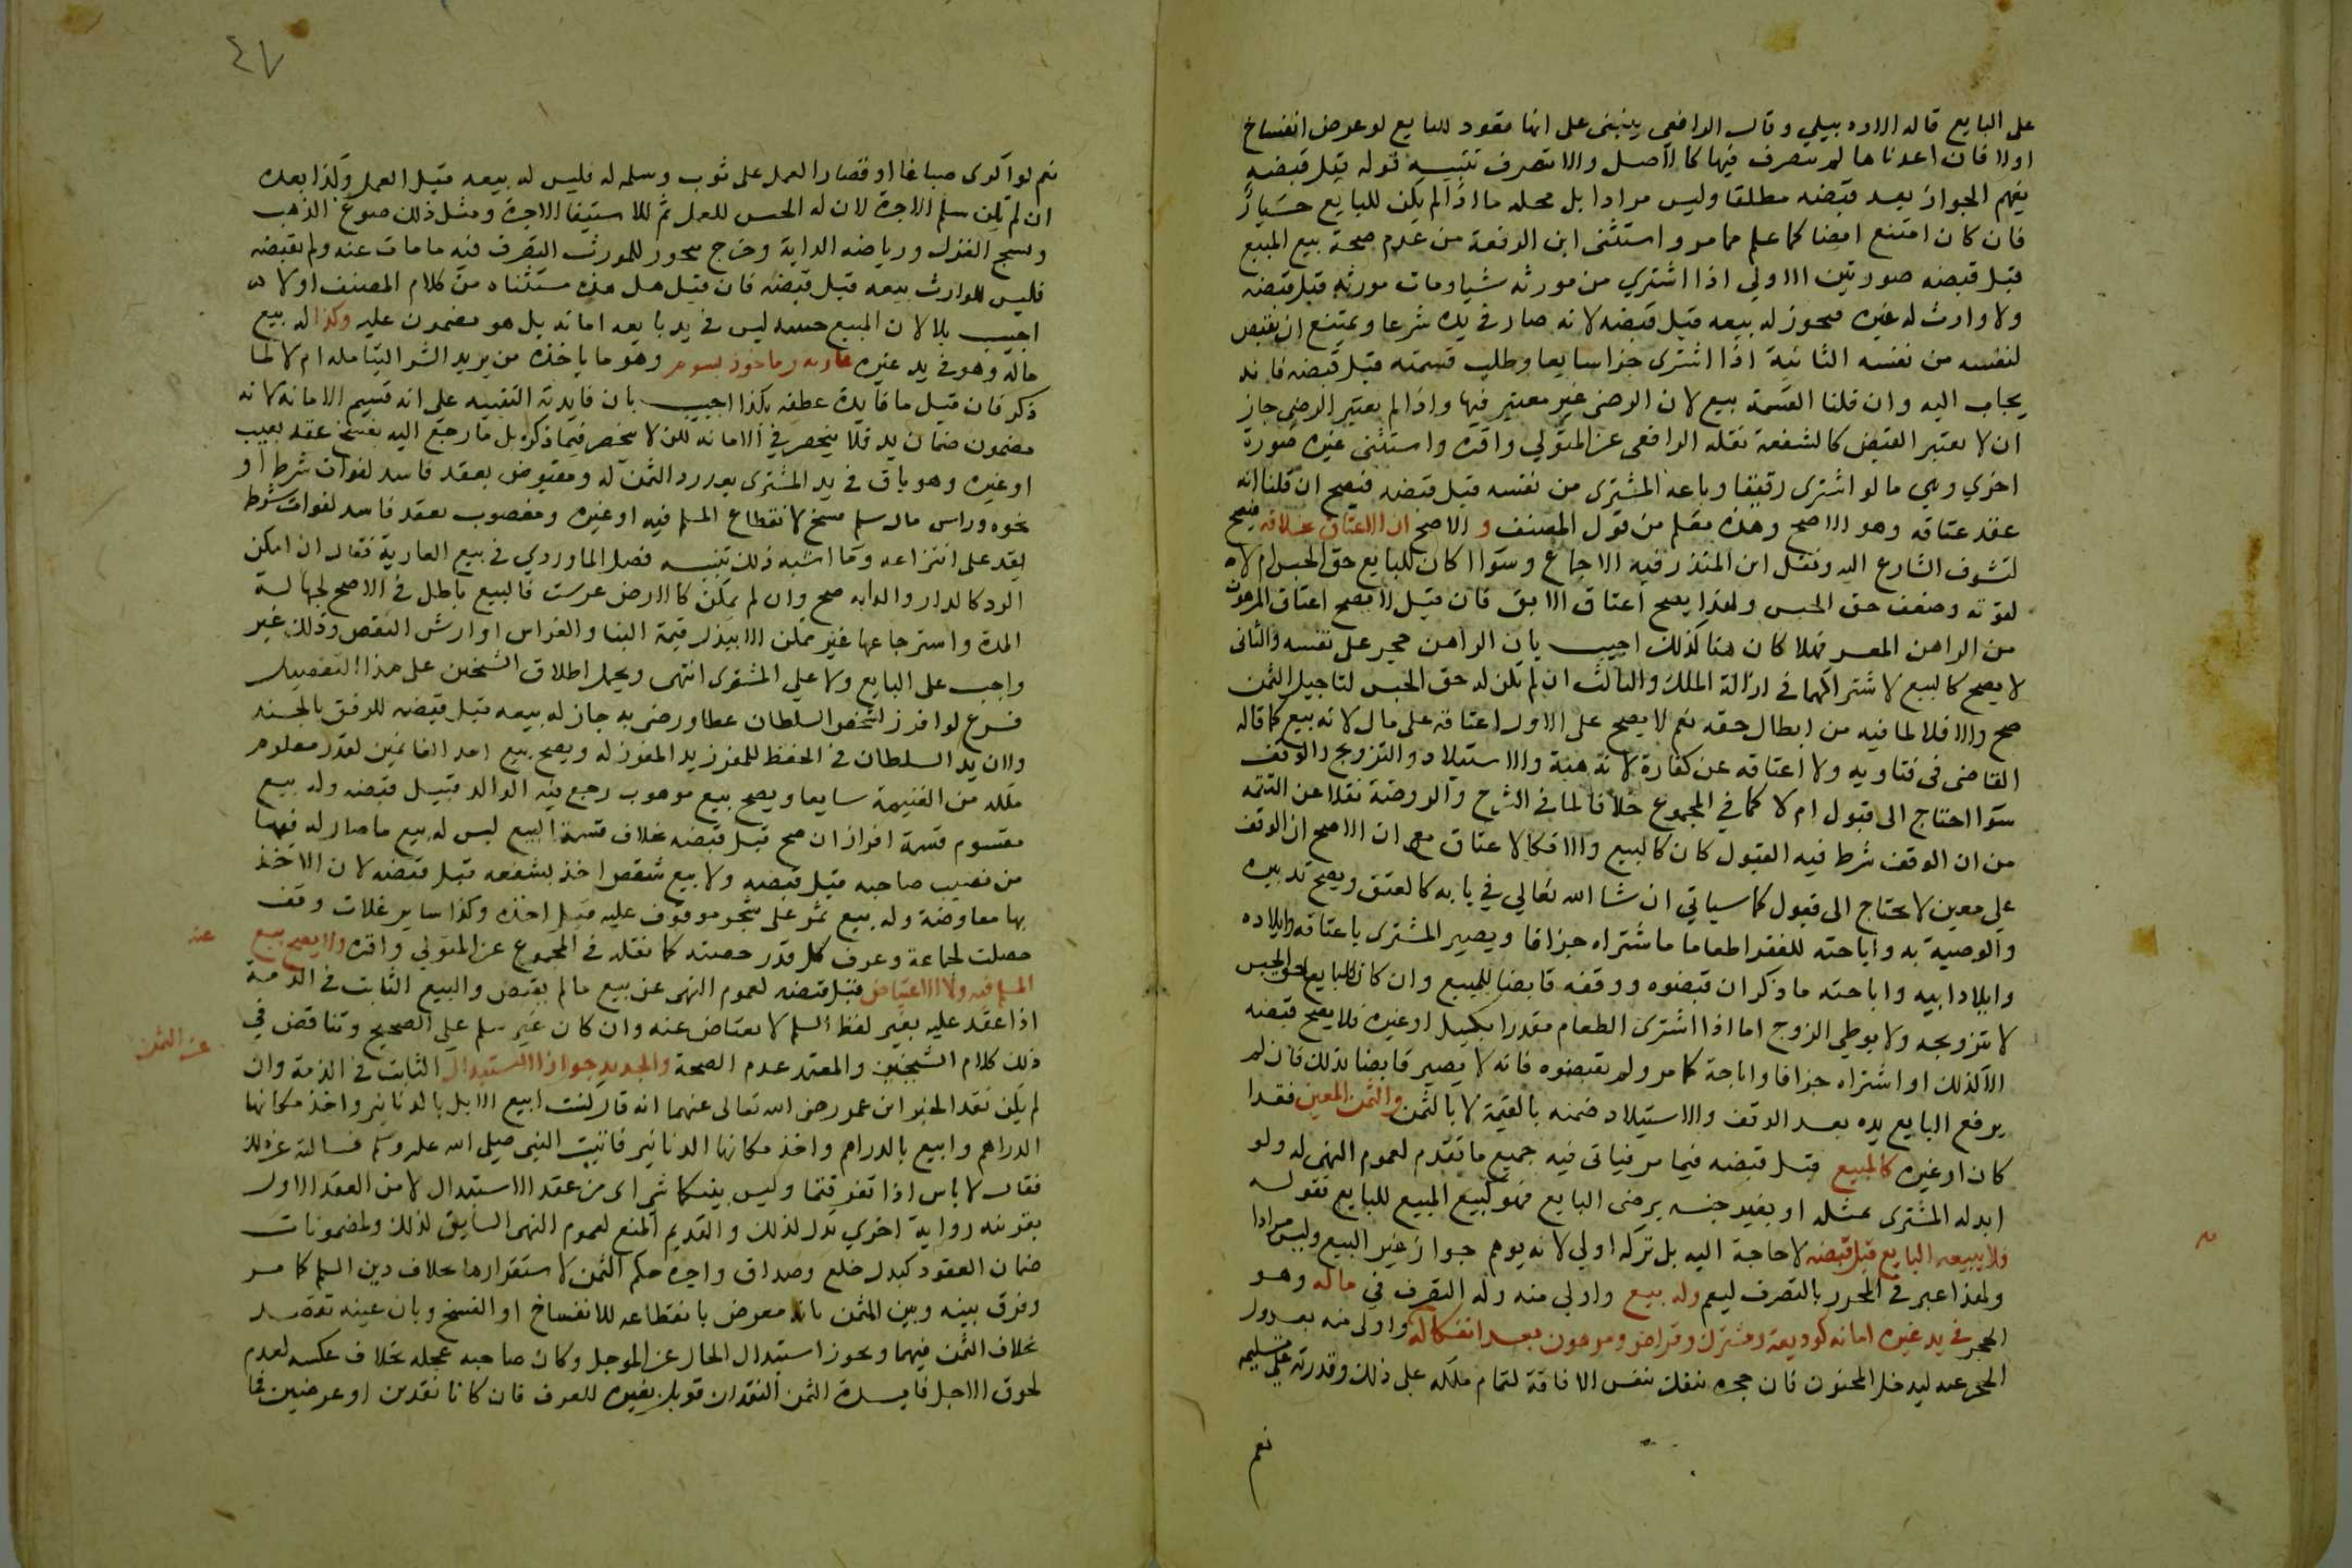 على البايع قاله الاردبيلي وقال الرافعي ينبني على انها مقود للبايع لو عرض انفساخ
اولا فان اعدناها لم يتصرف فيها كالاصل والا تصرف تنبيه قوله قبل قبضه
يفهم الجواز بعد قبضه مطلقا وليس مرادا بل محله ما اذا لم يكن للبايع خيار
فان كان امتنع ايضا كما علم مما مر واستثنى ابن الرفعة من عدم صحة بيع المبيع
قبل قبضه صورتين الاولي اذا اشتري من مورثه شيا ومات مورثه قبل قبضه
ولا وارث له غيره فيجوز له بيعه قبل قبضه لانه صار في يده شرعا ويمتنع ان يقبض
لنفسه من نفسه الثانية اذا اشترى جزا شايعا وطلب قسمته قبل قبضه فانه
يجاب اليه وان قلنا القسمة بيع لان الرضى غير معتبر فيها واذا لم يعتبر الرضى جاز
ان لا يعتبر القبض كالشفعة نقله الرافعى عن المتولي واقره واستثنى غيره صورة
اخري وهي ما لو اشترى رقيقا وباعه المشترى من نفسه قبل قبضه فيصح ان قلنا انه
عقد عتاقه وهو الاصح وهذه تعلم من قول المصنف و الاصح ان الاعتاق بخلافه فيصح
لتشوف الشارع اليه ونقل ابن المنذر فيه الاجماع وسوا اكان للبايع حق الحبس ام لا
لقوته وضعف حق الحبس ولهذا يصح اعتاق الابق فان قيل لا يصح اعتاق المرهون
من الراهن المعسر فهلا كان هنا كذلك اجيب بان الراهن حجر على نفسه والثاني
لا يصح كالبيع لاشتراكهما في ازالة الملك والثالث ان لم يكن له حق الحبس لتاجيل الثمن
صح والا فلا لما فيه من ابطال حقه نعم لا يصح على الاول اعتاقه على مال لانه بيع كما قاله
القاضى فى فتاويه ولا اعتاقه عن كفارة لانه هبة والاستيلاد والتزويج والوقف
سوا احتاج الى قبول ام لا كما في المجموع خلافا لما في الشرح والروضة نقلا عن التتمه
من ان الوقف شرط فيه القبول كان كالبيع والا فكالاعتاق مع ان الاصح ان الوقف
على معين لا يحتاج الى قبول كما سياتي ان شا الله تعالي في بابه كالعتق ويصح تدبيره
والوصية به واباحته للفقرا طعاما ما شتراه جزافا ويصير المشترى باعتاقه وايلاده
وايلاد ابيه واباحته ما ذكر ان قبضوه ووقفه قابضا للمبيع وان كان للبايع حق الحبس
لا بتزويجه ولا بوطي الزوج اما اذا اشترى الطعام مقدرا بكيل او غيره فلا يصح قبضه
الا كذلك او اشتراه جزافا واباحة كما مر ولم يقبضوه فانه لا يصير قابضا بذلك فان لم
يرفع البايع يده بعد الوقف والاستيلاد ضمنه بالقيمة لا بالثمن والثمن المعين فقدا
كان او غيره كالمبيع قبل قبضه فيما مر فياتى فيه جميع ما تقدم لعموم النهى له ولو
ابدله المشترى بمثله او بغير جنسه برضى البايع فهو كبيع المبيع للبايع فقوله
فلا يبيعه البايع قبل قبضه لا حاجة اليه بل تركه اولي لانه يوهم جواز غير البيع وليس مرادا
ولهذا عبر في المحرر بالتصرف ليعم وله بيع واولي منه وله التصرف في ماله وهو
في يد غيره امانه كوديعة ومشترك وقراض ومرهون بعد انفكاكه واولى منه بعد زوال
الحجر عنه ليدخل المجنون فان حجره ينفك بنفس الافاقة لتمام ملكه على ذلك وقدرته على تسليمه
نعم
٤٧
نعم لو اكرى صباغا او قصارا لعمل على ثوب وسلمه له فليس له بيعه قبل العمل وكذا بعده
ان لم يكن سلم الاجرة لان له الحبس للعمل ثم للاستيفا الاجرة ومثل ذلك صوغ الذهب
ونسج الغزل ورياضه الدابة وخرج بيجوز للمورث التصرف فيه ما مات عنه ولم يقبضه
فليس للوارث بيعه قبل قبضه فان قيل هل هذه مستثناه من كلام المصنف او لا
اجيب بلا لان المبيع حينيذ ليس في يد بايعه امانه بل هو مضمون عليه وكذا له بيع
ماله وهو في يد غيره عاريه وماخوذ بسوم وهو ما ياخذه من يريد الشرا ليتامله ام لا لما
ذكر فان قيل ما فايدة عطفه بكذا اجيب بان فايدته التنبيه على انه قسيم الامانه لانه
مضمون ضمان يد فلا ينحصر في الامانه لكن لا ينحصر فيما ذكره بل ما رجع اليه بفسخ عقد بعيب
او غيره وهو باق في يد المشترى بعد رد الثمن له ومقبوض بعقد فاسد لفوات شرط او
نحوه وراس مال سلم فسخ لانقطاع المسلم فيه او غيره ومغصوب بعقد فاسد لفوات شرط
يقدر على انتزاعه وما اشبه ذلك تنبيه فصل الماوردي في بيع العارية فقال ان امكن
الرد كالدار والدابه صح وان لم يمكن كالارض غرست فالبيع باطل في الاصح لجهالة
المدة واسترجاعها غير ممكن الا ببذل قيمة البنا والغراس او ارش النقص وذلك غير
واجب على البايع ولا علي المشترى انتهى ويحمل اطلاق الشيخين على هذا التفصيل
فرع لو افرز لشخص السلطان عطا ورضى به جاز له بيعه قبل قبضه للرفق بالجند
ولان يد السلطان في الحفظ للمفرز يد المفرز له ويصح بيع احد الغانمين لقدر معلوم
ملكه من الغنيمة شايعا ويصح بيع موهوب رجع فيه الوالد قبل قبضه وله بيع
مقسوم قسمة افراز ان صح قبل قبضه بخلاف قسمة البيع ليس له بيع ما صار له فيها
من نصيب صاحبه قبل قبضه ولا بيع شقص اخذ بشفعه قبل قبضه لان الاخذ
بها معاوضة وله بيع ثمر على شجر موقوف عليه قبل اخذه وكذا ساير غلات وقف
حصلت لجماعة وعرف كل قدر حصته كما نقله في المجموع عن المتولي واقره ولا يصح بيع
المسلم فيه ولا الاعتياض عنه قبل قبضه لعموم النهى عن بيع ما لم يقبض والبيع الثابت في الذمة
اذا عقد عليه بغير لفظ السلم لا يعتاض عنه وان كان غير سلم على الصحيح وتناقض في
ذلك كلام الشيخين والمعتمد عدم الصحة والجديد جواز الاستبدال عن الثمن الثابت في الذمة وان
لم يكن نقدا لخبر ابن عمر رضى الله تعالى عنهما انه قال كنت ابيع الابل بالدنانير واخذ مكانها
الدراهم وابيع بالدراهم واخذ مكانها الدنانير فاتيت النبى صلى الله عليه وسلم فسالته عن ذلك
فقال لا باس اذا تفرقتما وليس بينكما شى اى من عقد الاستبدال لا من العقد الاول
بقرينه رواية اخري تدل لذلك والقديم المنع لعموم النهى السابق لذلك ولمضمونات
ضمان العقود كبدل خلع وصداق واجرة حكم الثمن لاستقرارها بخلاف دين السلم كما مر
وفرق بينه وبين المثمن بانه معرض بانقطاعه للانفساخ او الفسخ وبان عينه تقصد
بخلاف الثمن فيهما ويجوز استبدال الحال عن الموجل وكان صاحبه عجله بخلاف عكسه لعدم
لحوق الاجل فايدة الثمن النقد ان قوبل بغيره للعرف فان كانا نقدين او عرضين فما